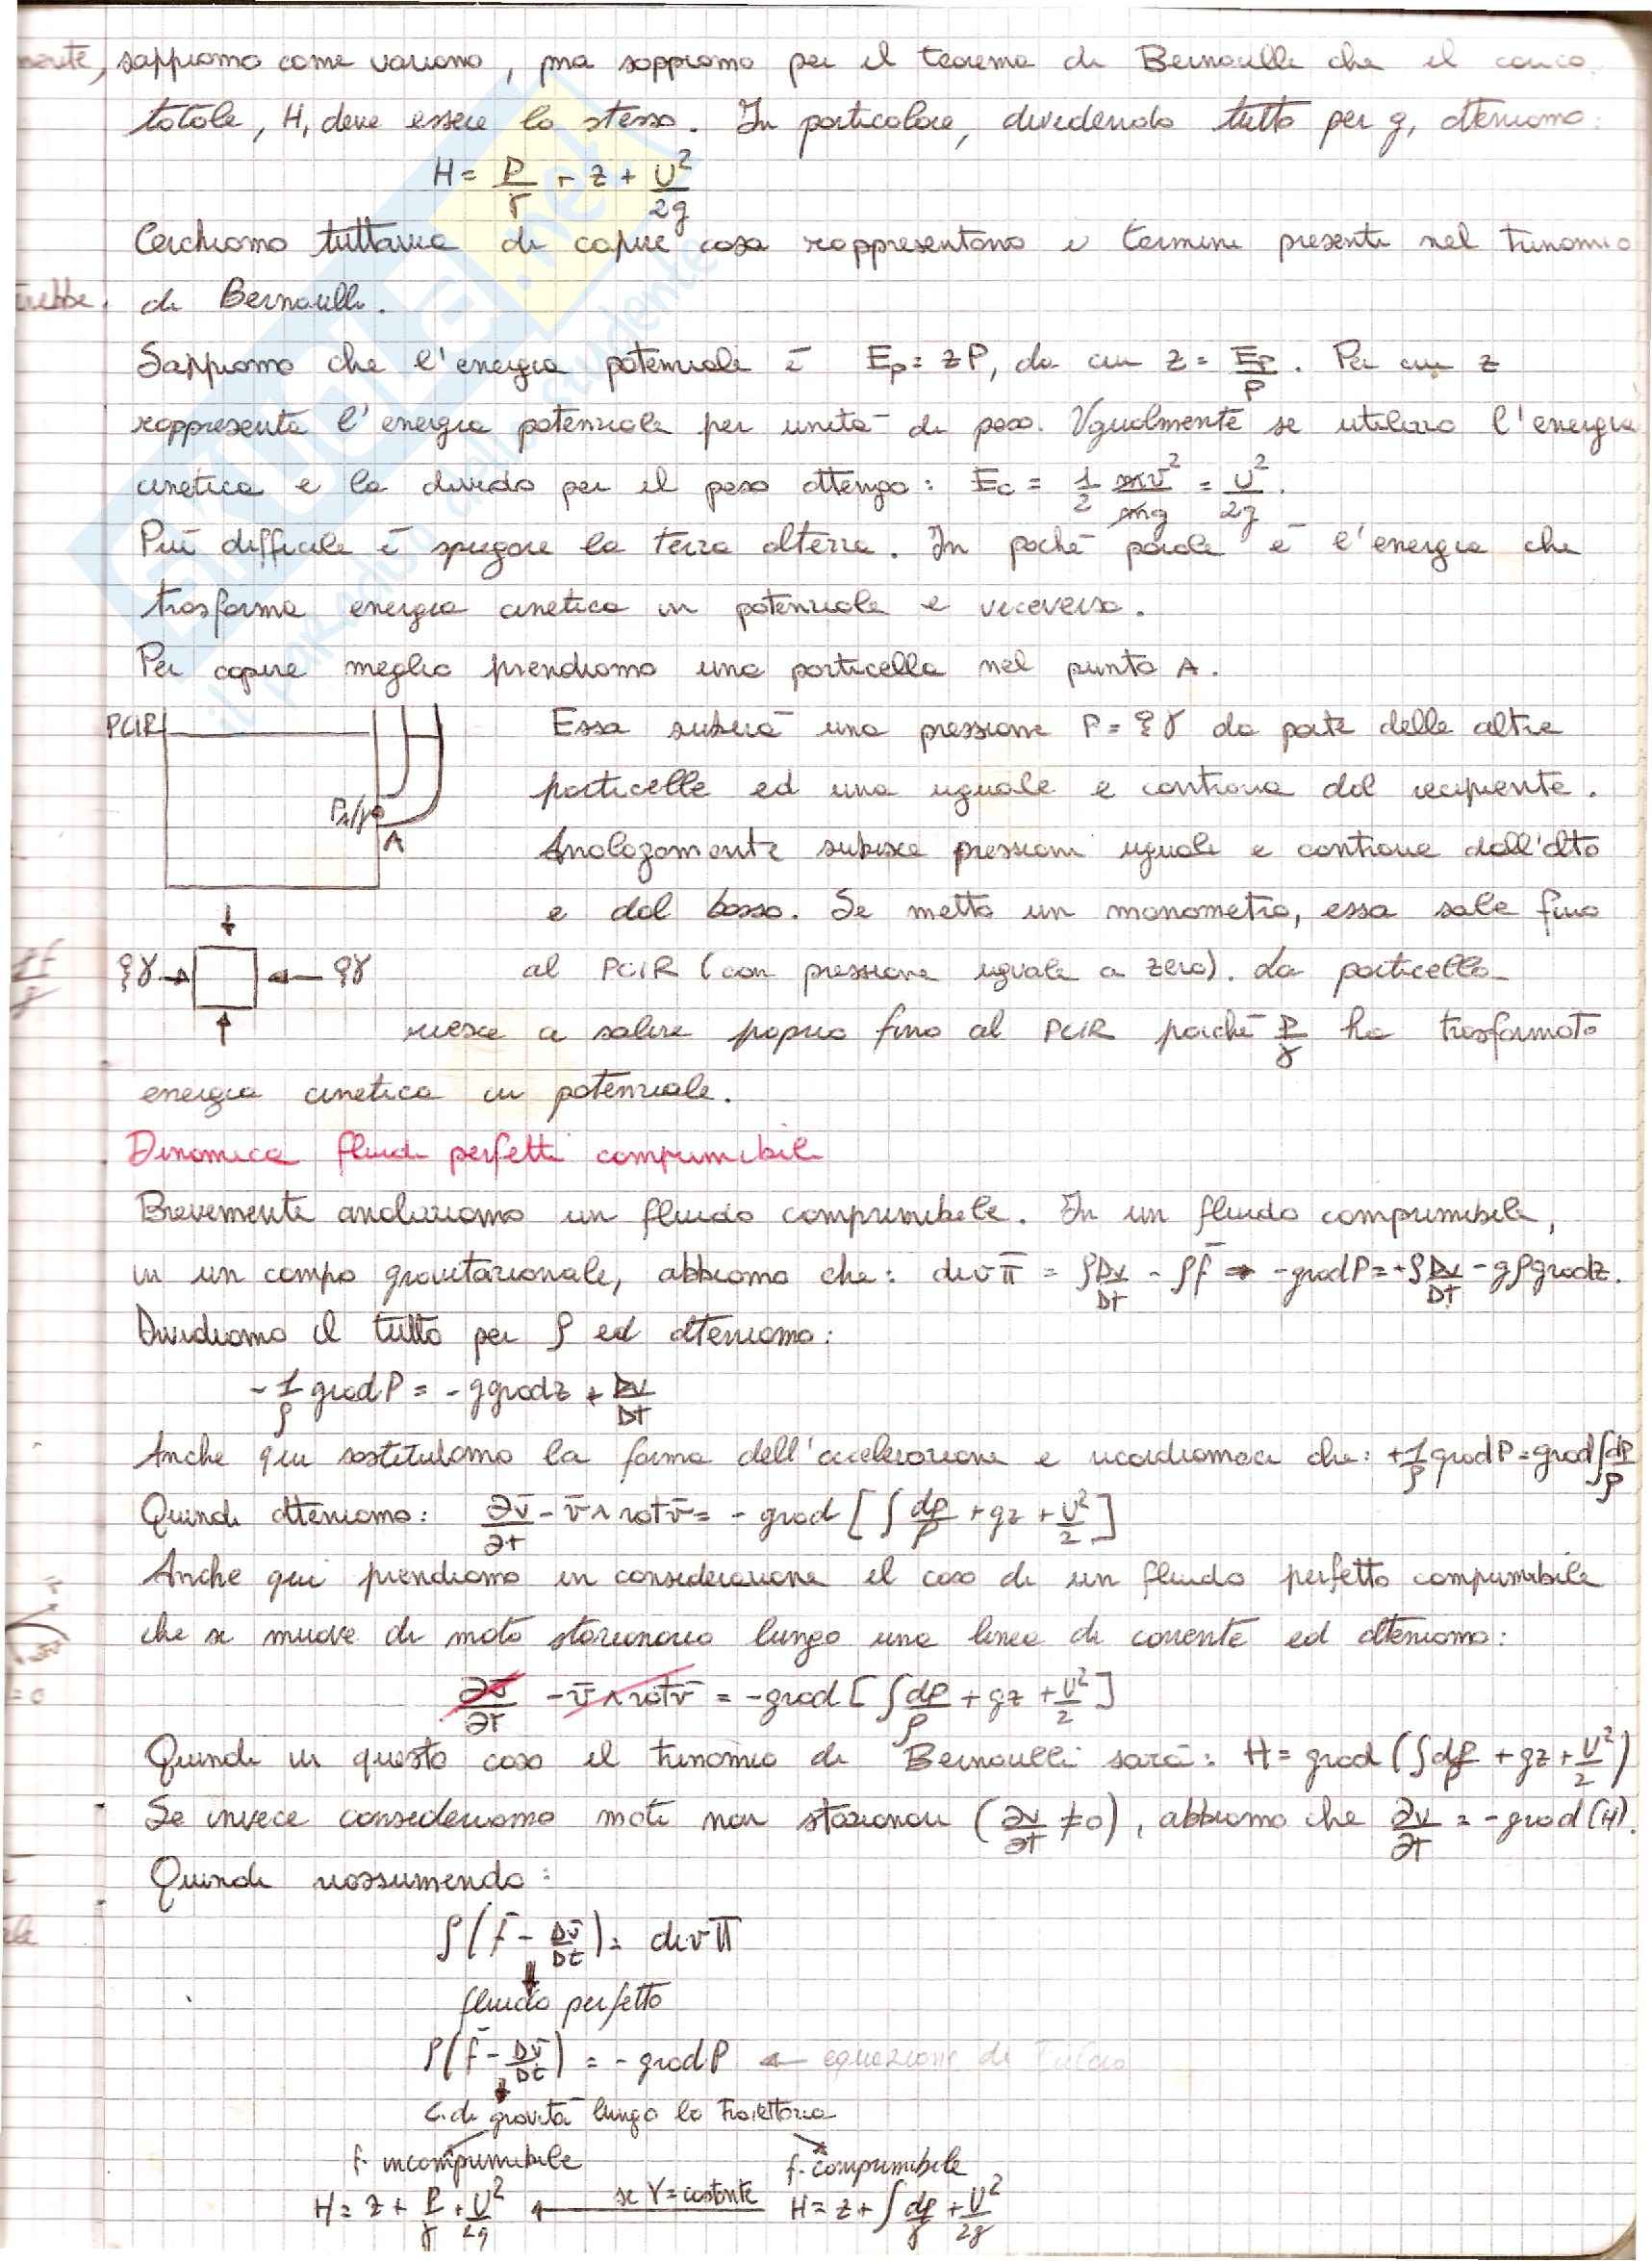 sappiamo come variano, ma sappiamo per il teorema di Bernoulli che il carico
totale, H, deve essere lo stesso. In particolare, dividendo tutto per g, otteniamo:
H = P/γ + z + U²/2g
Cerchiamo tuttavia di capire cosa rappresentano i termini presenti nel trinomio
di Bernoulli.
Sappiamo che l'energia potenziale è Ep = zP, da cui z = Ep/P. Per cui z
rappresenta l'energia potenziale per unità di peso. Ugualmente se utilizzo l'energia
cinetica e la divido per il peso ottengo: Ec = 1/2 mv²/mg = U²/2g.
Più difficile è spiegare la terza altezza. In poche parole è l'energia che
trasforma energia cinetica in potenziale e viceversa.
Per capire meglio prendiamo una particella nel punto A.
PCIR
A
Essa subirà una pressione P = ξγ da parte delle altre
particelle ed una uguale e contraria dal recipiente.
Analogamente subisce pressioni uguali e contrarie dall'alto
e dal basso. Se metto un manometro, essa sale fino
ξγ → ← ξγ
al PCIR (con pressione uguale a zero). La particella
riesce a salire proprio fino al PCIR poiché P/γ ha trasformato
energia cinetica in potenziale.
Dinamica fluidi perfetti comprimibili
Brevemente analizziamo un fluido comprimibile. In un fluido comprimibile,
in un campo gravitazionale, abbiamo che: div π = ρ Dv/Dt - ρf̄ → -grad P = +ρ Dv/Dt - gρ grad z.
Dividiamo il tutto per ρ ed otteniamo:
- 1/ρ grad P = - g grad z + Dv/Dt
Anche qui sostituiamo la forma dell'accelerazione e ricordiamoci che: + 1/ρ grad P = grad ∫ dp/ρ
Quindi otteniamo: ∂v̄/∂t - v̄ ∧ rot v̄ = - grad [∫ dp/ρ + gz + U²/2]
Anche qui prendiamo in considerazione il caso di un fluido perfetto comprimibile
che si muove di moto stazionario lungo una linea di corrente ed otteniamo:
∂v̄/∂t - v̄ ∧ rot v̄ = - grad [∫ dp/ρ + gz + U²/2]
Quindi in questo caso il trinomio di Bernoulli sarà: H = grad (∫ dp/ρ + gz + U²/2)
Se invece consideriamo moti non stazionari (∂v/∂t ≠ 0), abbiamo che ∂v/∂t = - grad (H).
Quindi riassumendo:
ρ(f̄ - Dv̄/Dt) = div π
fluido perfetto
ρ(f̄ - Dv̄/Dt) = - grad P ← equazione di Eulero
C. di gravità lungo la traiettoria
f. incomprimibile f. comprimibile
H = z + P/γ + U²/2g ← se γ = costante H = z + ∫ dp/γ + U²/2g